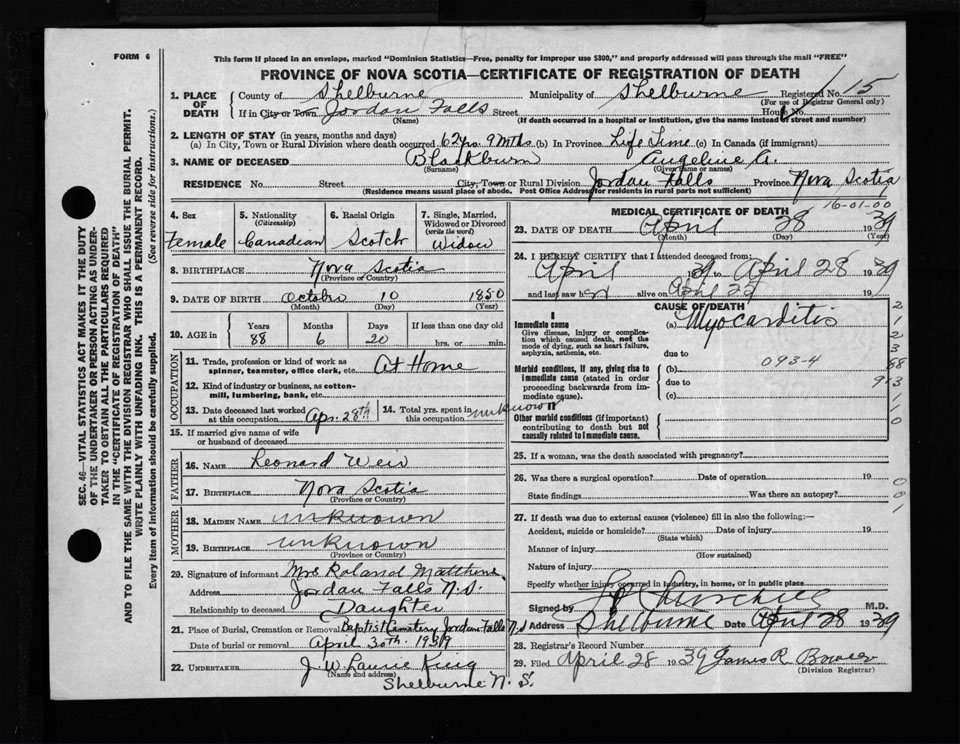 FORM 6
This form if placed in an envelope, marked "Dominion Statistics—Free, penalty for improper use $300," and properly addressed will pass through the mail "FREE"
PROVINCE OF NOVA SCOTIA—CERTIFICATE OF REGISTRATION OF DEATH
SEC. 46—VITAL STATISTICS ACT MAKES IT THE DUTY
OF THE UNDERTAKER OR PERSON ACTING AS UNDER-
TAKER TO OBTAIN ALL THE PARTICULARS REQUIRED
IN THE "CERTIFICATE OF REGISTRATION OF DEATH"
AND TO FILE THE SAME WITH THE DIVISION REGISTRAR WHO SHALL ISSUE THE BURIAL PERMIT.
WRITE PLAINLY WITH UNFADING INK. THIS IS A PERMANENT RECORD.
Every item of information should be carefully supplied. (See reverse side for instructions.)
1. PLACE OF DEATH
County of Shelburne Municipality of Shelburne Registered No. 15
(For use of Registrar General only)
If in City or Town Jordan Falls Street House No.
(Name) (If death occurred in a hospital or institution, give the name instead of street and number)
2. LENGTH OF STAY (in years, months and days)
(a) In City, Town or Rural Division where death occurred 62 yrs. 9 mths (b) In Province Life Time (c) In Canada (if immigrant)
3. NAME OF DECEASED Blackburn Angeline A.
(Surname) (Given name or names)
RESIDENCE No. Street City, Town or Rural Division Jordan Falls Province Nova Scotia
(Residence means usual place of abode. Post Office Address for residents in rural parts not sufficient)
16-01-00
4. Sex Female
5. Nationality (Citizenship) Canadian
6. Racial Origin Scotch
7. Single, Married, Widowed or Divorced (write the word) Widow
8. BIRTHPLACE Nova Scotia
(Province or Country)
9. DATE OF BIRTH October 10 1850
(Month) (Day) (Year)
10. AGE in Years Months Days If less than one day old
88 6 20 hrs. or min.
OCCUPATION
11. Trade, profession or kind of work as spinner, teamster, office clerk, etc. At Home
12. Kind of industry or business, as cotton-mill, lumbering, bank, etc.
13. Date deceased last worked at this occupation Apr. 28th
14. Total yrs. spent in this occupation unknown
15. If married give name of wife or husband of deceased
FATHER
16. NAME Leonard Weir
17. BIRTHPLACE Nova Scotia
(Province or Country)
MOTHER
18. MAIDEN NAME unknown
19. BIRTHPLACE unknown
(Province or Country)
20. Signature of informant Mrs Roland Matthews
Address Jordan Falls N.S.
Relationship to deceased Daughter
21. Place of Burial, Cremation or Removal Baptist Cemetery Jordan Falls N.S
Date of burial or removal April 30th 1939
22. UNDERTAKER J. W. Laurie King
(Name and address)
Shelburne N. S.
MEDICAL CERTIFICATE OF DEATH
23. DATE OF DEATH April 28 1939
(Month) (Day) (Year)
24. I HEREBY CERTIFY that I attended deceased from:
April 1939 to April 28 1939
and last saw her alive on April 1939
CAUSE OF DEATH
I
Immediate cause
Give disease, injury or complication which caused death, not the mode of dying, such as heart failure, asphyxia, asthenia, etc.
(a) Myocarditis
due to
Morbid conditions, if any, giving rise to immediate cause (stated in order proceeding backwards from immediate cause).
(b) 093-4
due to
(c)
II
Other morbid conditions (if important) contributing to death but not causally related to immediate cause.
25. If a woman, was the death associated with pregnancy?
26. Was there a surgical operation? Date of operation 19
State findings Was there an autopsy?
27. If death was due to external causes (violence) fill in also the following:—
Accident, suicide or homicide? Date of injury 19
(State which)
Manner of injury
(How sustained)
Nature of injury
Specify whether injury occurred in industry, in home, or in public place
Signed by Churchill M.D.
Address Shelburne Date April 28 1939
28. Registrar's Record Number
29. Filed April 28 1939 James R Bower
(Division Registrar)